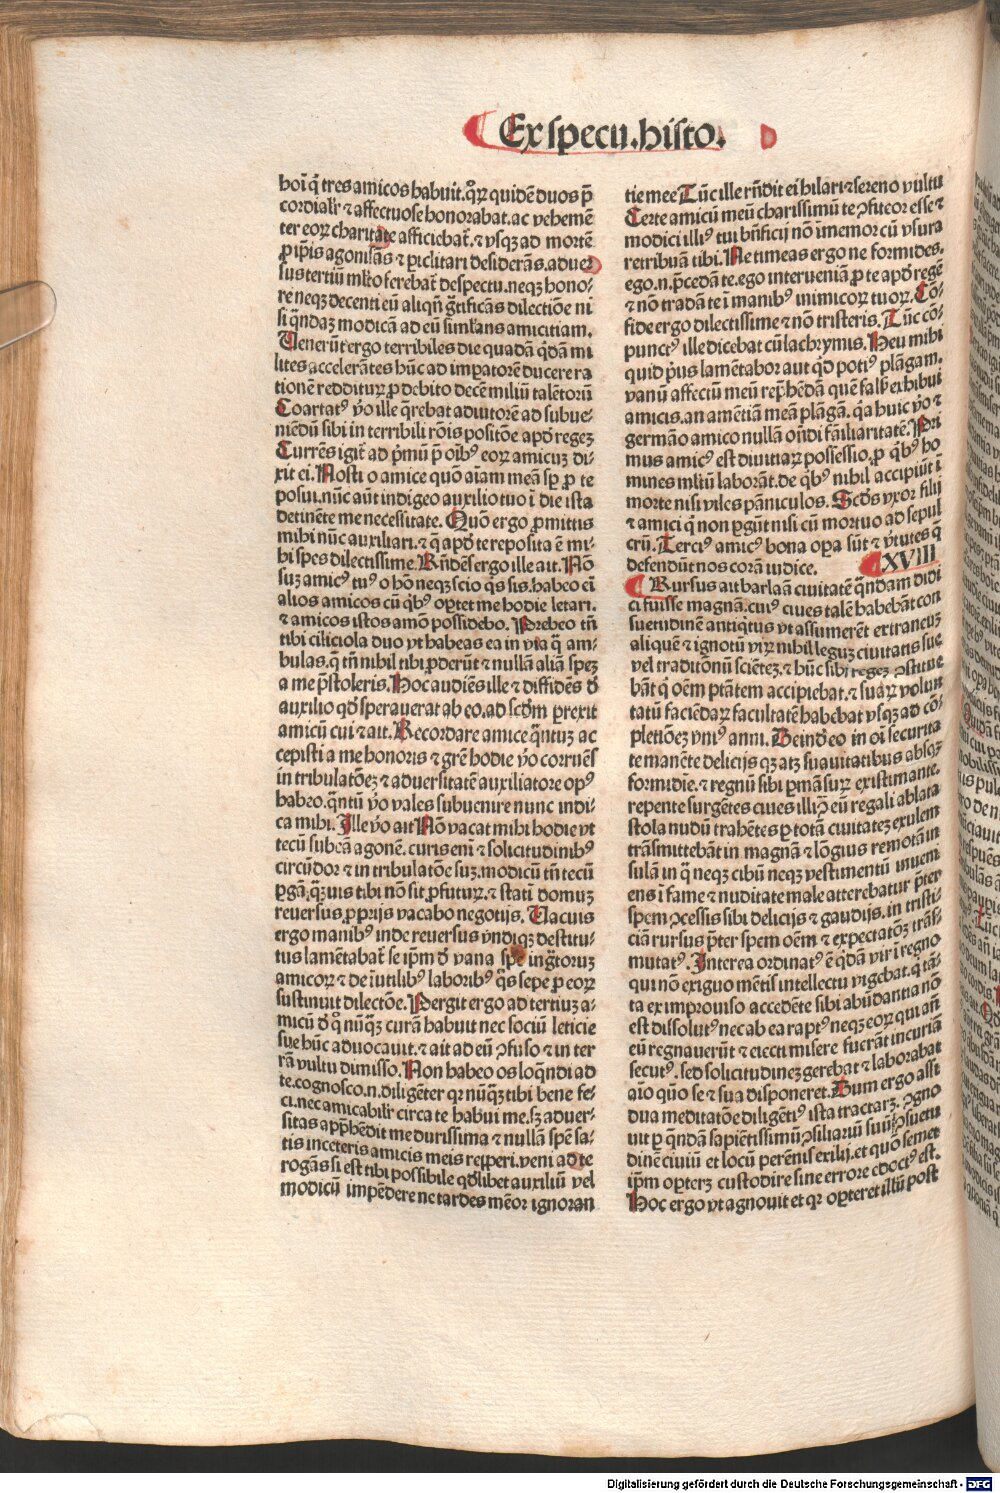 Ex specu. histo.
hoī q̄ tres amicos habuit. qͦꝝ quidē duos p̄
cordialr̄ ⁊ affectuose honorabat. ac vehemē
ter eoꝝ charitate afficiebat̄. ⁊ vsqꝫ ad mortē
ꝓ ip̄is agonisās ⁊ ꝑiclitari desiderās. aduer
sus tertiū ml̄to ferebat̄ despectu. neqꝫ hono⸗
re neqꝫ decenti eū aliqn̄ gr̄tificās dilectiōe ni
si q̄ndaꝫ modicā ad eū simĺans amicitiam.
Venerūt ergo terribiles die quadā q̇dā mi
lites accelerātes hūc ad impatorē ducere ra
tionē redditurꝝ ꝓ debito decē miliū talētorū
Coartatꝰ ꝟo ille q̄rebat adiutorē ad subue⸗
niēdū sibi in terribili rōis positōe apd̄ regeꝫ
Currēs igit̄ ad pͥmū p̄ oīb̄ꝰ eoꝝ amicuꝫ di⸗
xit ei. Nosti o amice quō aīam meā sp̄ ꝓ te
posui. nūc aūt indigeo auxilio tuo ī die ista
detinēte me necessitate. Quō ergo ꝓmittis
mihi nūc auxiliari. ⁊ q̄ apd̄ te reposita ē mi⸗
hi spes dilectissime. Rn̄dēs ergo ille ait. Nō
suꝫ amicꝰ tuꝰ o hō neqꝫ scio q̇s sis. habeo eī
alios amicos cū q̇bꝰ oꝑtet me hodie letari.
⁊ amicos istos amō possidebo. Prebeo tn̄
tibi ciliciola duo vt habeas ea in via q̄ am⸗
bulas. q̄ tn̄ nihil tibi ꝓderūt ⁊ nullā aliā speꝫ
a me p̄stoleris. Hoc audiēs ille ⁊ diffidēs d̄
auxilio qd̄ sperauerat ab eo. ad scd̄m ꝑrexit
amicū cui ⁊ ait. Recordare amice q̄ntuꝫ ac
cepisti a me honoris ⁊ gr̄e hodie ꝟo corruēs
in tribulatōeꝫ ⁊ aduersitatē auxiliatore opꝰ
habeo. q̄ntū ꝟo vales subuenire nunc indi
ca mihi. Ille ꝟo ait Nō vacat mihi hodie vt
tecū subeā agonē. curis enī ⁊ solicitudinibꝰ
circūdor ⁊ in tribulatōe suꝫ. modicū tn̄ tecū
ꝑgā. q̄uis tibi nō sit ꝓfuturꝝ. ⁊ statī domuꝫ
reuersus. ꝓprijs vacabo negotijs. Vacuis
ergo manibꝰ inde reuersus vndiqꝫ destitu⸗
tus lamētabat̄ se ip̄m d̄ vana spe ingr̄toruꝫ
amicoꝝ ⁊ de īutilibꝰ laboribꝰ q̇s sepe ꝓ eoꝝ
sustinuit dilectōe. Pergit ergo ad tertiuꝫ a⸗
micū d̄ qͦ nūq̄ꝫ curā habuit nec sociū leticie
sue hūc aduocauit. ⁊ ait ad eū ꝯfuso ⁊ in ter
rā vultu dimisso. Non habeo os loq̄ndi ad
te. cognosco. n. diligēter qꝛ nūq̄ꝫ tibi bene fe⸗
ci. nec amicabilr̄ circa te habui me. sꝫ aduer⸗
sitas app̄hēdit me durissima ⁊ nullā spē sa⸗
tis inceteris amicis meis reꝑeri. veni ad te
rogās si est tibi possibile qd̄libet auxiliū vel
modicū impēdere ne tardes mēor ignoran
tie mee Tūc ille rn̄dit ei hilari ⁊ sereno vultu
Certe amicū meū charissimū te ꝓfiteor esse ⁊
modici illiꝰ tui bn̄ficij nō īmemor cū vsura
retribuā tibi. Ne timeas ergo ne formides.
ego. n. p̄cedā te. ego interueniā ꝓ te apd̄ regē
⁊ nō tradā te ī manibꝰ inimicoꝝ tuoꝝ. Cō⸗
fide ergo dilectissime ⁊ nō tristeris. Tūc cō⸗
punctꝰ ille dicebat cū lachrymis. Heu mihi
quid pͥus lamētabor aut qd̄ potiꝰ plāgam.
vanū affectū meū rep̄hēdā quē falsꝭ exhibui
amicis. an amētiā meā plāgā. q̄a huic ꝟo ⁊
germāo amico nullā on̄di fāiliaritatē. Pri
mus amicꝰ est diuitiaꝝ possessio. ꝓ q̇bꝰ ho
mines ml̄tū laborāt. de q̇bꝰ nihil accipiūt ī
morte nisi viles pāniculos. Scd̄s vxor filij
⁊ amici q̄ non ꝑgūt nisi cū mortuo ad sepul
crū. Terciꝰ amicꝰ bona oꝑa sūt ⁊ ꝟtutes q̄
defendūt nos corā iudice. XVIII
Rursus ait barlaā ciuitatē q̄ndam didi
ci fuisse magnā. cuiꝰ ciues talē habebāt con
suetudinē antiq̇tus vt assumerēt extraneuꝫ
aliquē ⁊ ignotū viꝝ nihil leguꝫ ciuitatis sue
vel traditōnū sciēteꝫ. ⁊ hūc sibi regeꝫ ꝯstitue
bāt q̇ oēm ptātem accipiebat. ⁊ suaꝝ volun
tatū faciēdaꝝ facultatē habebat vsqꝫ ad cō⸗
pletiōeꝫ vniꝰ anni. Deinde eo in oī securita
te manēte delicijsqꝫ atqꝫ suauitatibus absqꝫ
formidīe. ⁊ regnū sibi ꝑmāsuꝝ existimante.
repente surgētes ciues illiꝰ eū regali ablata
stola nudū trahētes ꝑ totā ciuitateꝫ exulem
trāsmittebāt in magnā ⁊ lōgius remotā in
sulā in q̄ neqꝫ cibū neqꝫ vestimentū inueni
ens ī fame ⁊ nuditate male atterebatur p̄ter
spem ꝯcessis sibi delicijs ⁊ gaudijs. in tristi⸗
ciā rursus p̄ter spem oēm ⁊ expectatōꝫ trāf⸗
mutatꝰ. Interea ordinatꝰ ē q̇dā vir ī regno
qui nō exiguo mētis intellectu vigebat. q̇ tā⸗
ta ex improuiso accedēte sibi abūdantia nō
est dissolutꝰ nec ab ea raptꝰ neqꝫ eoꝝ qui añ
eū regnauerūt ⁊ eiecti misere fuerāt incuriā
secutꝰ. sed solicitudineꝫ gerebat ⁊ laborabat
aīo quō se ⁊ sua disponeret. Dum ergo assi
dua meditatōe diligētiꝰ ista tractarꝫ. ꝯgno
uit ꝑ q̄ndā sapiētissimū ꝯsiliariū suū ꝯsuetu
dinē ciuiū et locū perēnis exilij. et quō semet
ip̄m oꝑterꝫ custodire sine errore edoctꝰ est.
Hoc ergo vt agnouit et qꝛ oꝑteret illū post
Digitalisierung gefördert durch die Deutsche Forschungsgemeinschaft - DFG